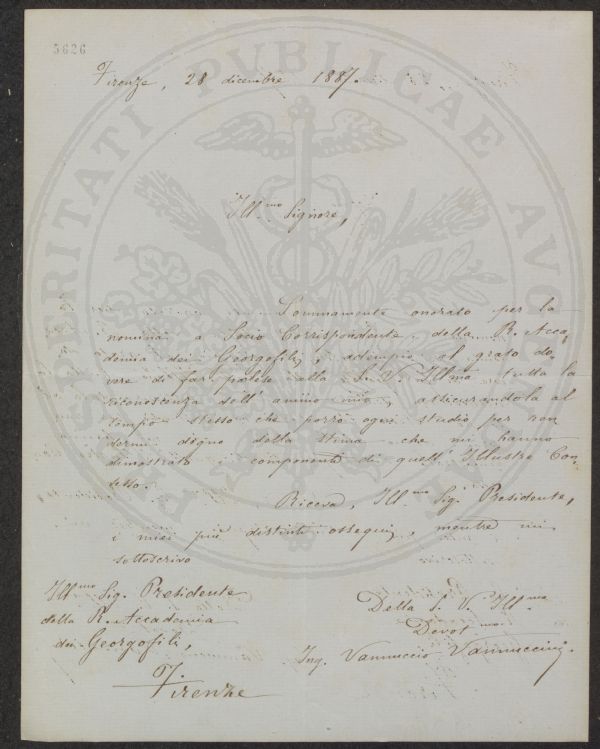 5626
Firenze, 28 dicembre 1887.
Ill.mo Signore,
Sommamente onorato per la
nomina a Socio Corrispondente della R. Acca
demia dei Georgofili, adempio al grato do
vere di far palese alla S. V. Ill.ma tutta la
riconoscenza dell'animo mio, assicurandola al
tempo stesso che porrò ogni studio per ren
dermi degno della stima che mi hanno
dimostrato i componenti di quell'Illustre Con
sesso.
Riceva, Ill.mo Sig. Presidente,
i miei più distinti ossequi, mentre mi
sottoscrivo
Ill.mo Sig. Presidente
della R. Accademia
dei Georgofili,
Firenze
Della S. V. Ill.ma
Devot.mo
Ing. Vannuccio Vannuccini.
PROSPERITATI PUBLICAE AUGENDAE